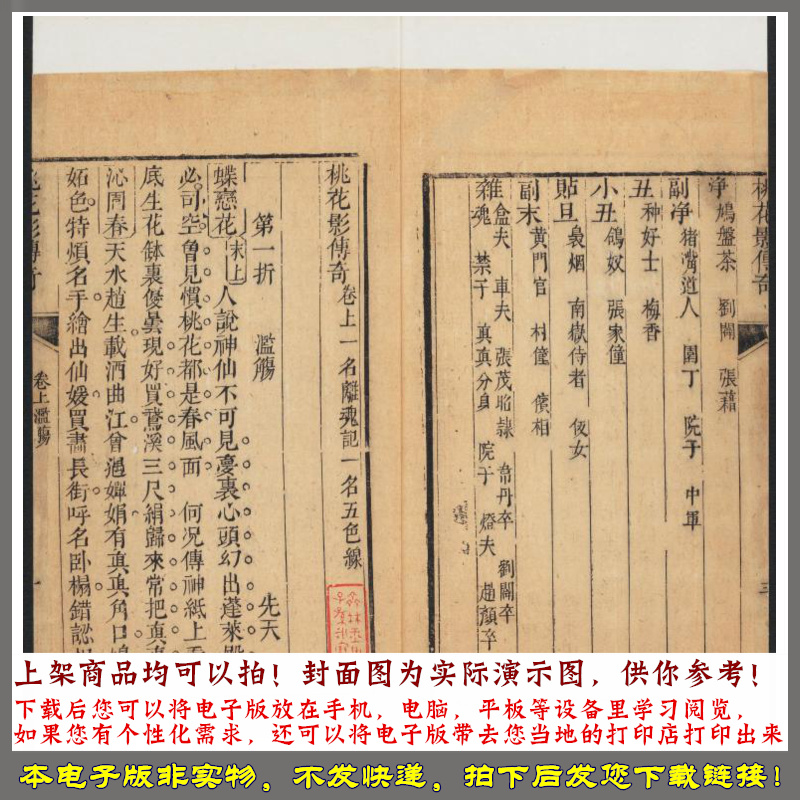 桃花影傳奇
淨 鳩盤茶 劉闢 張藉
副淨 猪嘴道人 園丁 院子 中軍
丑 种好士 梅香
小丑 鴿奴 張家僮
貼旦 裊烟 南嶽侍者 侲女
副末 黃門官 村僮 儐相
雜 盒夫 車夫 張茂昭隸 韋丹卒 劉闢卒
魂 禁子 真真分身 院子 燈夫 趙顏卒
桃花影傳奇 卷上 一名離魂記 一名五色線
第一折 濫觴 先天
蝶戀花 末上 人說神仙不可見憂裏心頭幻出蓬萊殿
必司空曾見慣桃花都是春風面 何況傳神紙上
底生花缽裏優曇現好買鵞溪三尺絹歸來常把真真
沁園春 天水趙生載酒曲江曾遇嬋娟有真真角口
妬色特煩名手繪出仙媛買畵長街呼名卧榻錯認
桃花影傳奇
卷上 濫觴
一
上架商品均可以拍！封面图为实际演示图，供你参考！
下载后您可以将电子版放在手机，电脑，平板等设备里学习阅览，
如果您有个性化需求，还可以将电子版带去您当地的打印店打印出来
本电子版非实物，不发快递，拍下后发您下载链接！